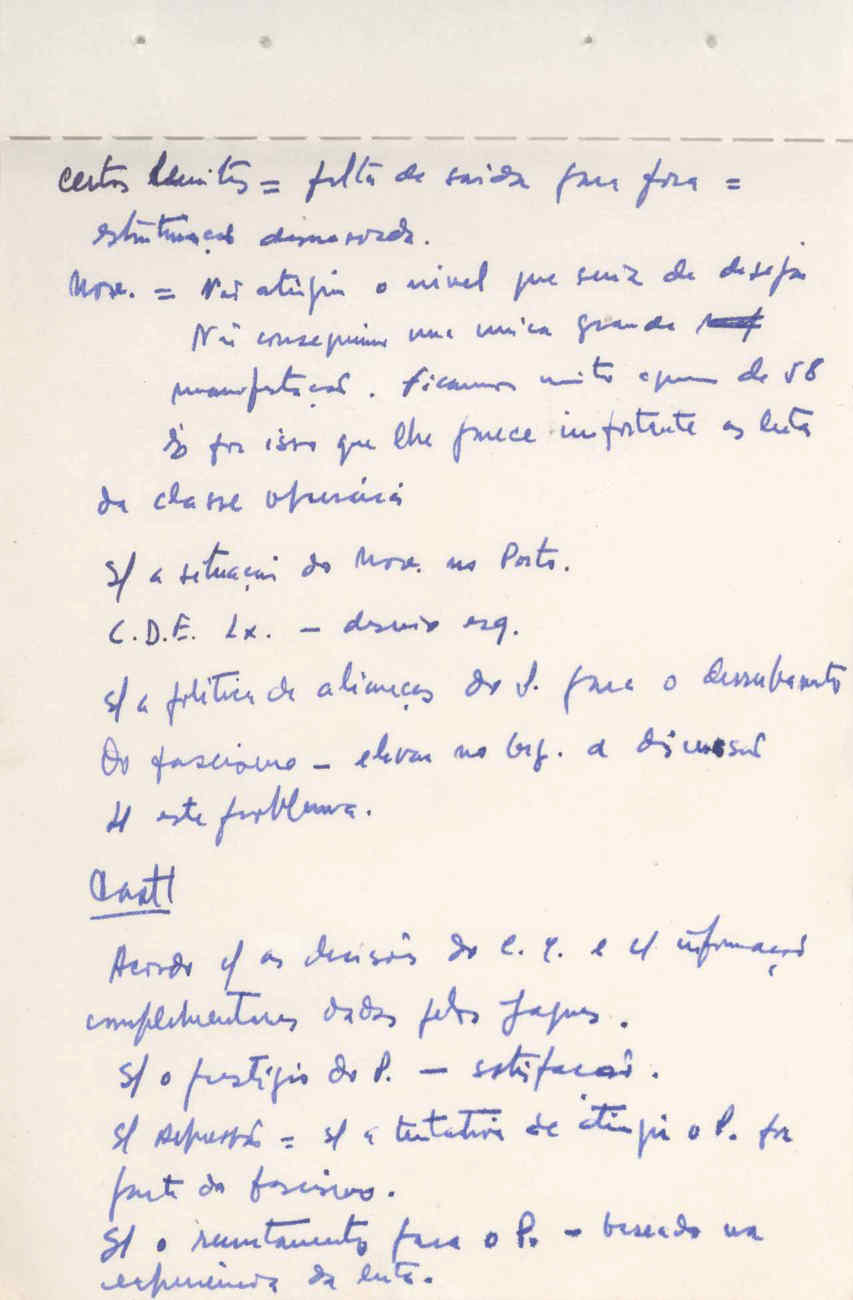 certos limites = falta de saída para fora =
estruturação demasiada.
Mov. = Não atingiu o nível que seria de desejar
Não conseguimos uma única grande
manifestação. Ficamos muito aquem de 58
É por isso que lhe parece importante as lutas
da classe operária
S/ a situação do Mov. no Porto.
C.D.E. Lx. — desvio esq.
S/ a política de alianças do P. para o derrubamento
do fascismo — elevar no org. a discussão
s/ este problema.
Acordo c/ as decisões do C. C. e c/ informações
complementares dadas pelo Jaques.
S/ o prestígio do P. — satisfação.
S/ repressão = s/ a tentativa de atingir o P. por
parte do fascismo.
S/ o recrutamento para o P. — baseado na
experiência da luta.